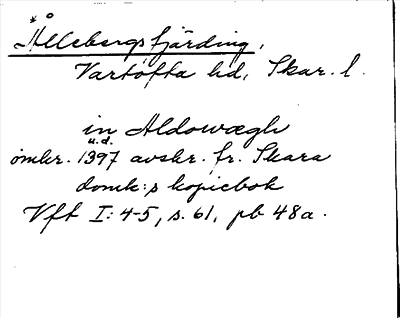 * Ållebergs fjärding,
Vartofta hd, Skar. l.
in Aldowægh
u.d.
omkr. 1397 avskr. fr. Skara
domk:s kopiebok
Vft I: 4-5, s. 61, pb 48a.